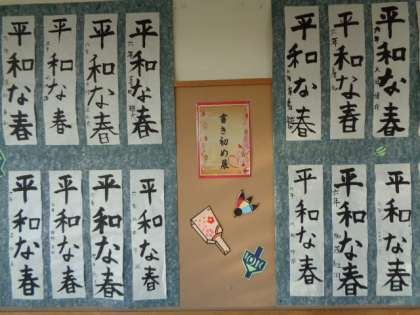 平和な春
平和な春
平和な春
平和な春
平和な春
平和な春
平和な春
書き初め展
平和な春
平和な春
平和な春
平和な春
平和な春
平和な春
平和な春